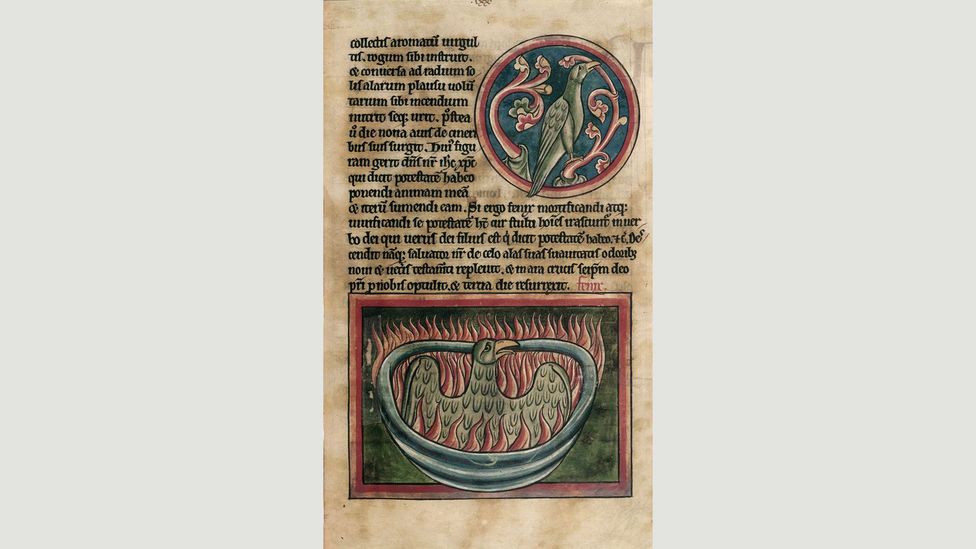 collectis aromatū uirgul
tis. rogum sibi instruit.
& conuersa ad radium so
lis alarum plausu uolū
tarium sibi incendium
nutrit seq; urit. postea
ū die nona auis de cineri
bus suis surgit. hui' figu
ram gerit dn̄s nr̄ ihc xpc
qui dicit potestatē habeo
ponendi animam meā
& iterū sumendi eam. Si ergo fenix mortificandi atq;
uiuificandi se potestatē ht cur stulti hoīes irascunt̄ in uer
bo dei qui uerus dei filius est q̇ dicit potestatē habeo. +c. De
cendit nāq; saluator nr̄ de celo alas suas suauitatis odorib;
noui & ueteris testamti repleuit. & in ara crucis seip̄m deo
pr̄i p nobis optulit. & tercia die resurrexit. fenix.